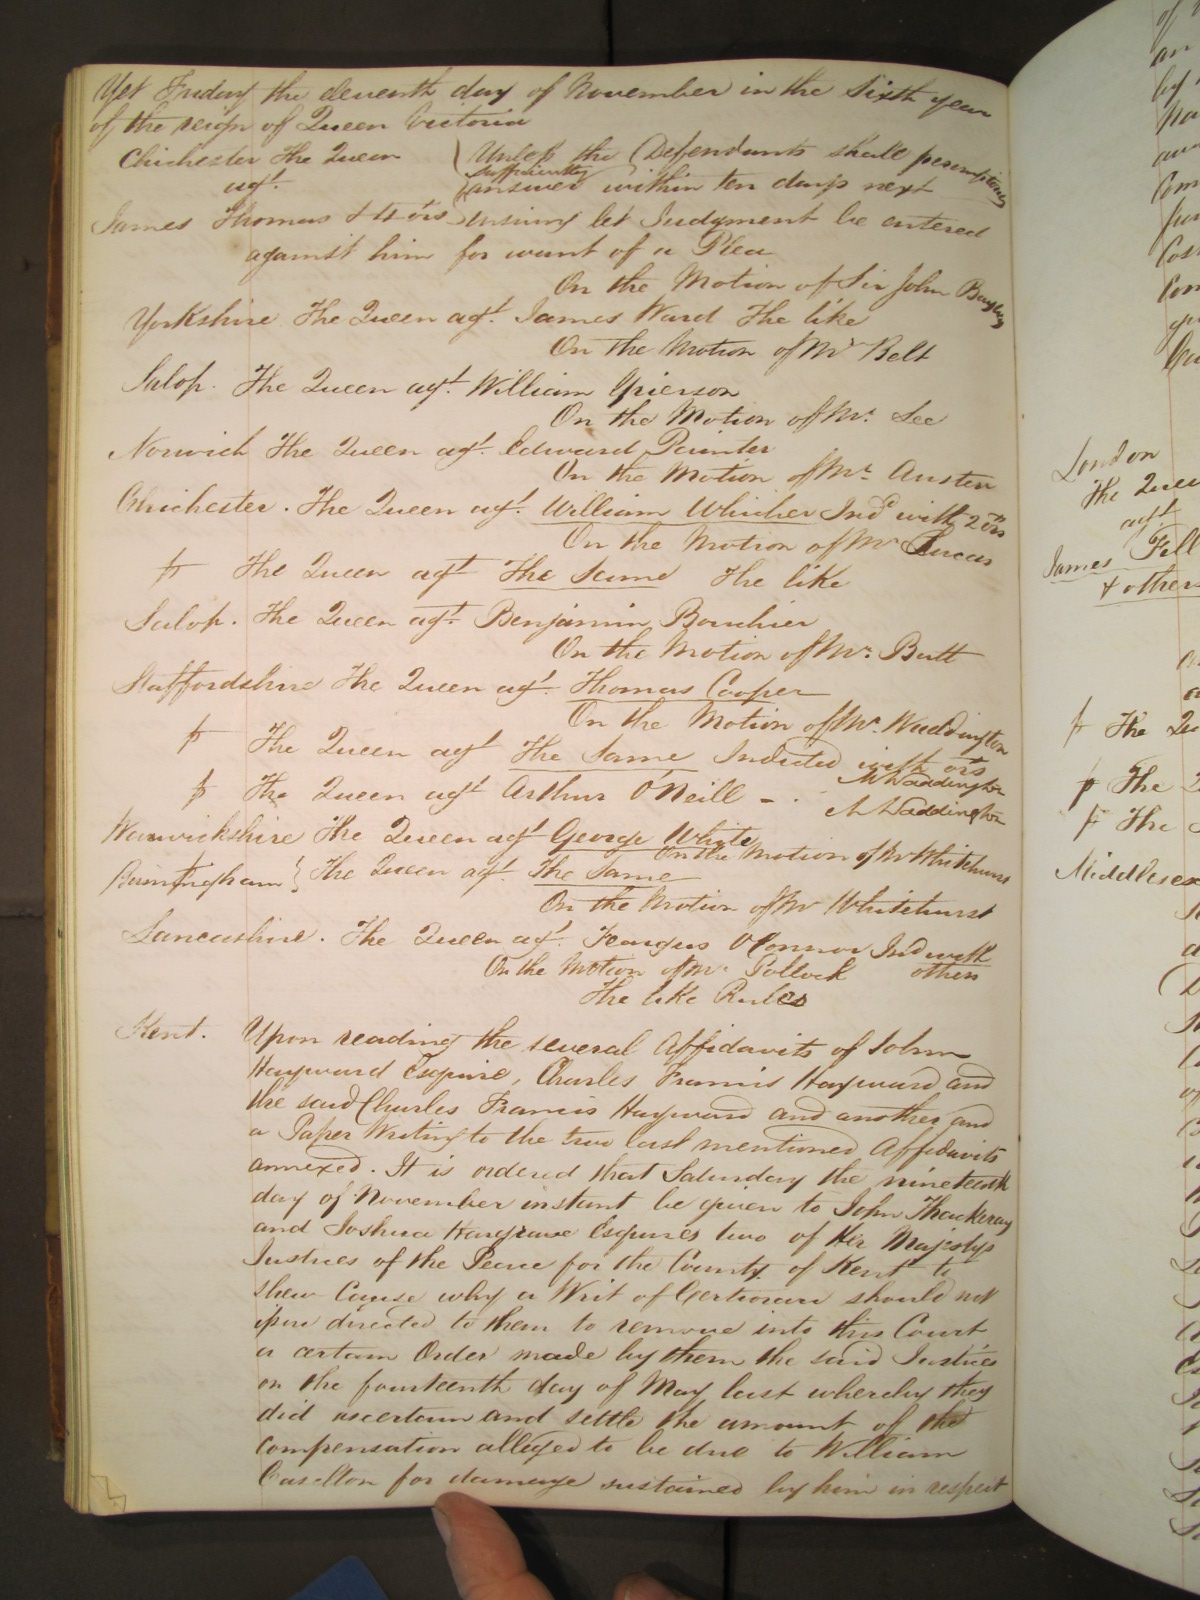 Yet Friday the eleventh day of November in the Sixth year
of the reign of Queen Victoria
Chichester The Queen
agt.
James Thomas & 4 ors
Unless the Defendants shall peremptorily
sufficiently
answer within ten days next
ensuing let Judgment be entered
against him for want of a Plea
On the Motion of Sir John Bayley
Yorkshire The Queen agt. James Ward The like
On the Motion of Mr Belt
Salop. The Queen agt. William Grierson
On the Motion of Mr. Lee
Norwich The Queen agt. Edward Painter
On the Motion of Mr. Austen
Chichester. The Queen agt. William Whicher Indd with 2 ors
On the Motion of Mr Lucas
The Queen agt The Same The like
Salop. The Queen agt. Benjamin Bouchier
On the Motion of Mr. Butt
Staffordshire The Queen agt. Thomas Cooper
On the Motion of Mr. Waddington
The Queen agt The Same Indicted with ors
Mr Waddington
The Queen agt Arthur O'Neill - .
Mr Waddington
Warwickshire The Queen agt George White
On the Motion of Mr Whitehurst
Birmingham } The Queen agt. The Same
On the Motion of Mr Whitehurst
Lancashire. The Queen agt. Feargus O'Connor Ind with
On the Motion of Mr. Pollock others
The like Rules
Kent. Upon reading the several Affidavits of John
Hayward Esquire, Charles Francis Hayward and
the said Charles Francis Hayward and another and
a Paper Writing to the two last mentioned Affidavits
annexed. It is ordered that Saturday the nineteenth
day of November instant be given to John Thackeray
and Joshua Hargrave Esquires two of Her Majestys
Justices of the Peace for the County of Kent to
shew Cause why a Writ of Certiorari should not
issue directed to them to remove into this Court
a certain Order made by them the said Justices
on the fourteenth day of May last whereby they
did ascertain and settle the amount of the
compensation alledged to be due to William
for damage sustained by him in respect
London
The Queen
agt
James
& others
The
The
The
Middlesex